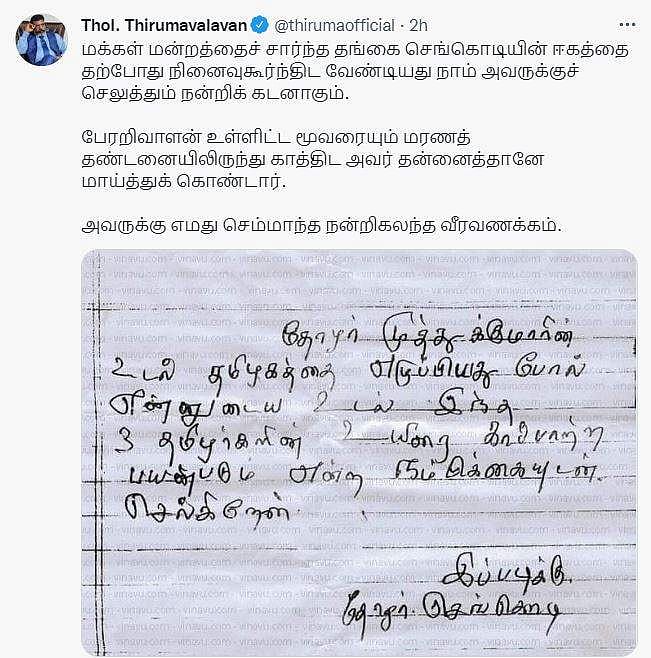 Thol. Thirumavalavan @thirumaofficial · 2h
மக்கள் மன்றத்தைச் சார்ந்த தங்கை செங்கொடியின் ஈகத்தை
தற்போது நினைவுகூர்ந்திட வேண்டியது நாம் அவருக்குச்
செலுத்தும் நன்றிக் கடனாகும்.
பேரறிவாளன் உள்ளிட்ட மூவரையும் மரணத்
தண்டனையிலிருந்து காத்திட அவர் தன்னைத்தானே
மாய்த்துக் கொண்டார்.
அவருக்கு எமது செம்மாந்த நன்றிகலந்த வீரவணக்கம்.
தோழர் முத்துக்குமாரின்
உடல் தமிழகத்தை எழுப்பியது போல்
என்னுடைய உடல் இந்த
3 தமிழர்களின் உயிரை காப்பாற்ற
பயன்படும் என்ற நம்பிக்கையுடன்.
செல்கிறேன்.
இப்படிக்கு,
தோழர். செங்கொடி
vinavu.com